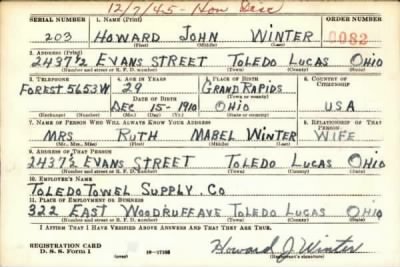 12/7/45-Hon Disc
SERIAL NUMBER 1. NAME (Print) ORDER NUMBER
203 HOWARD JOHN WINTER 0082
(First) (Middle) (Last)
2. ADDRESS (Print)
2437½ EVANS STREET TOLEDO LUCAS OHIO
(Number and street or R. F. D. number) (Town) (County) (State)
3. TELEPHONE 4. AGE IN YEARS 5. PLACE OF BIRTH 6. COUNTRY OF CITIZENSHIP
FOREST 5653W 29 GRAND RAPIDS
DATE OF BIRTH
DEC 15-1910 OHIO USA
(Exchange) (Number) (Mo.) (Day) (Yr.) (State or country)
7. NAME OF PERSON WHO WILL ALWAYS KNOW YOUR ADDRESS 8. RELATIONSHIP OF THAT PERSON
MRS RUTH MABEL WINTER WIFE
(Mr., Mrs., Miss) (First) (Middle) (Last)
9. ADDRESS OF THAT PERSON
2437½ EVANS STREET TOLEDO LUCAS OHIO
(Number and street or R. F. D. number) (Town) (County) (State)
10. EMPLOYER'S NAME
TOLEDO TOWEL SUPPLY. CO
11. PLACE OF EMPLOYMENT OR BUSINESS
322 EAST WOODRUFF AVE TOLEDO LUCAS OHIO
(Number and street or R. F. D. number) (Town) (County) (State)
I AFFIRM THAT I HAVE VERIFIED ABOVE ANSWERS AND THAT THEY ARE TRUE.
REGISTRATION CARD
D. S. S. Form 1 Howard J Winter
(Registrant's signature)